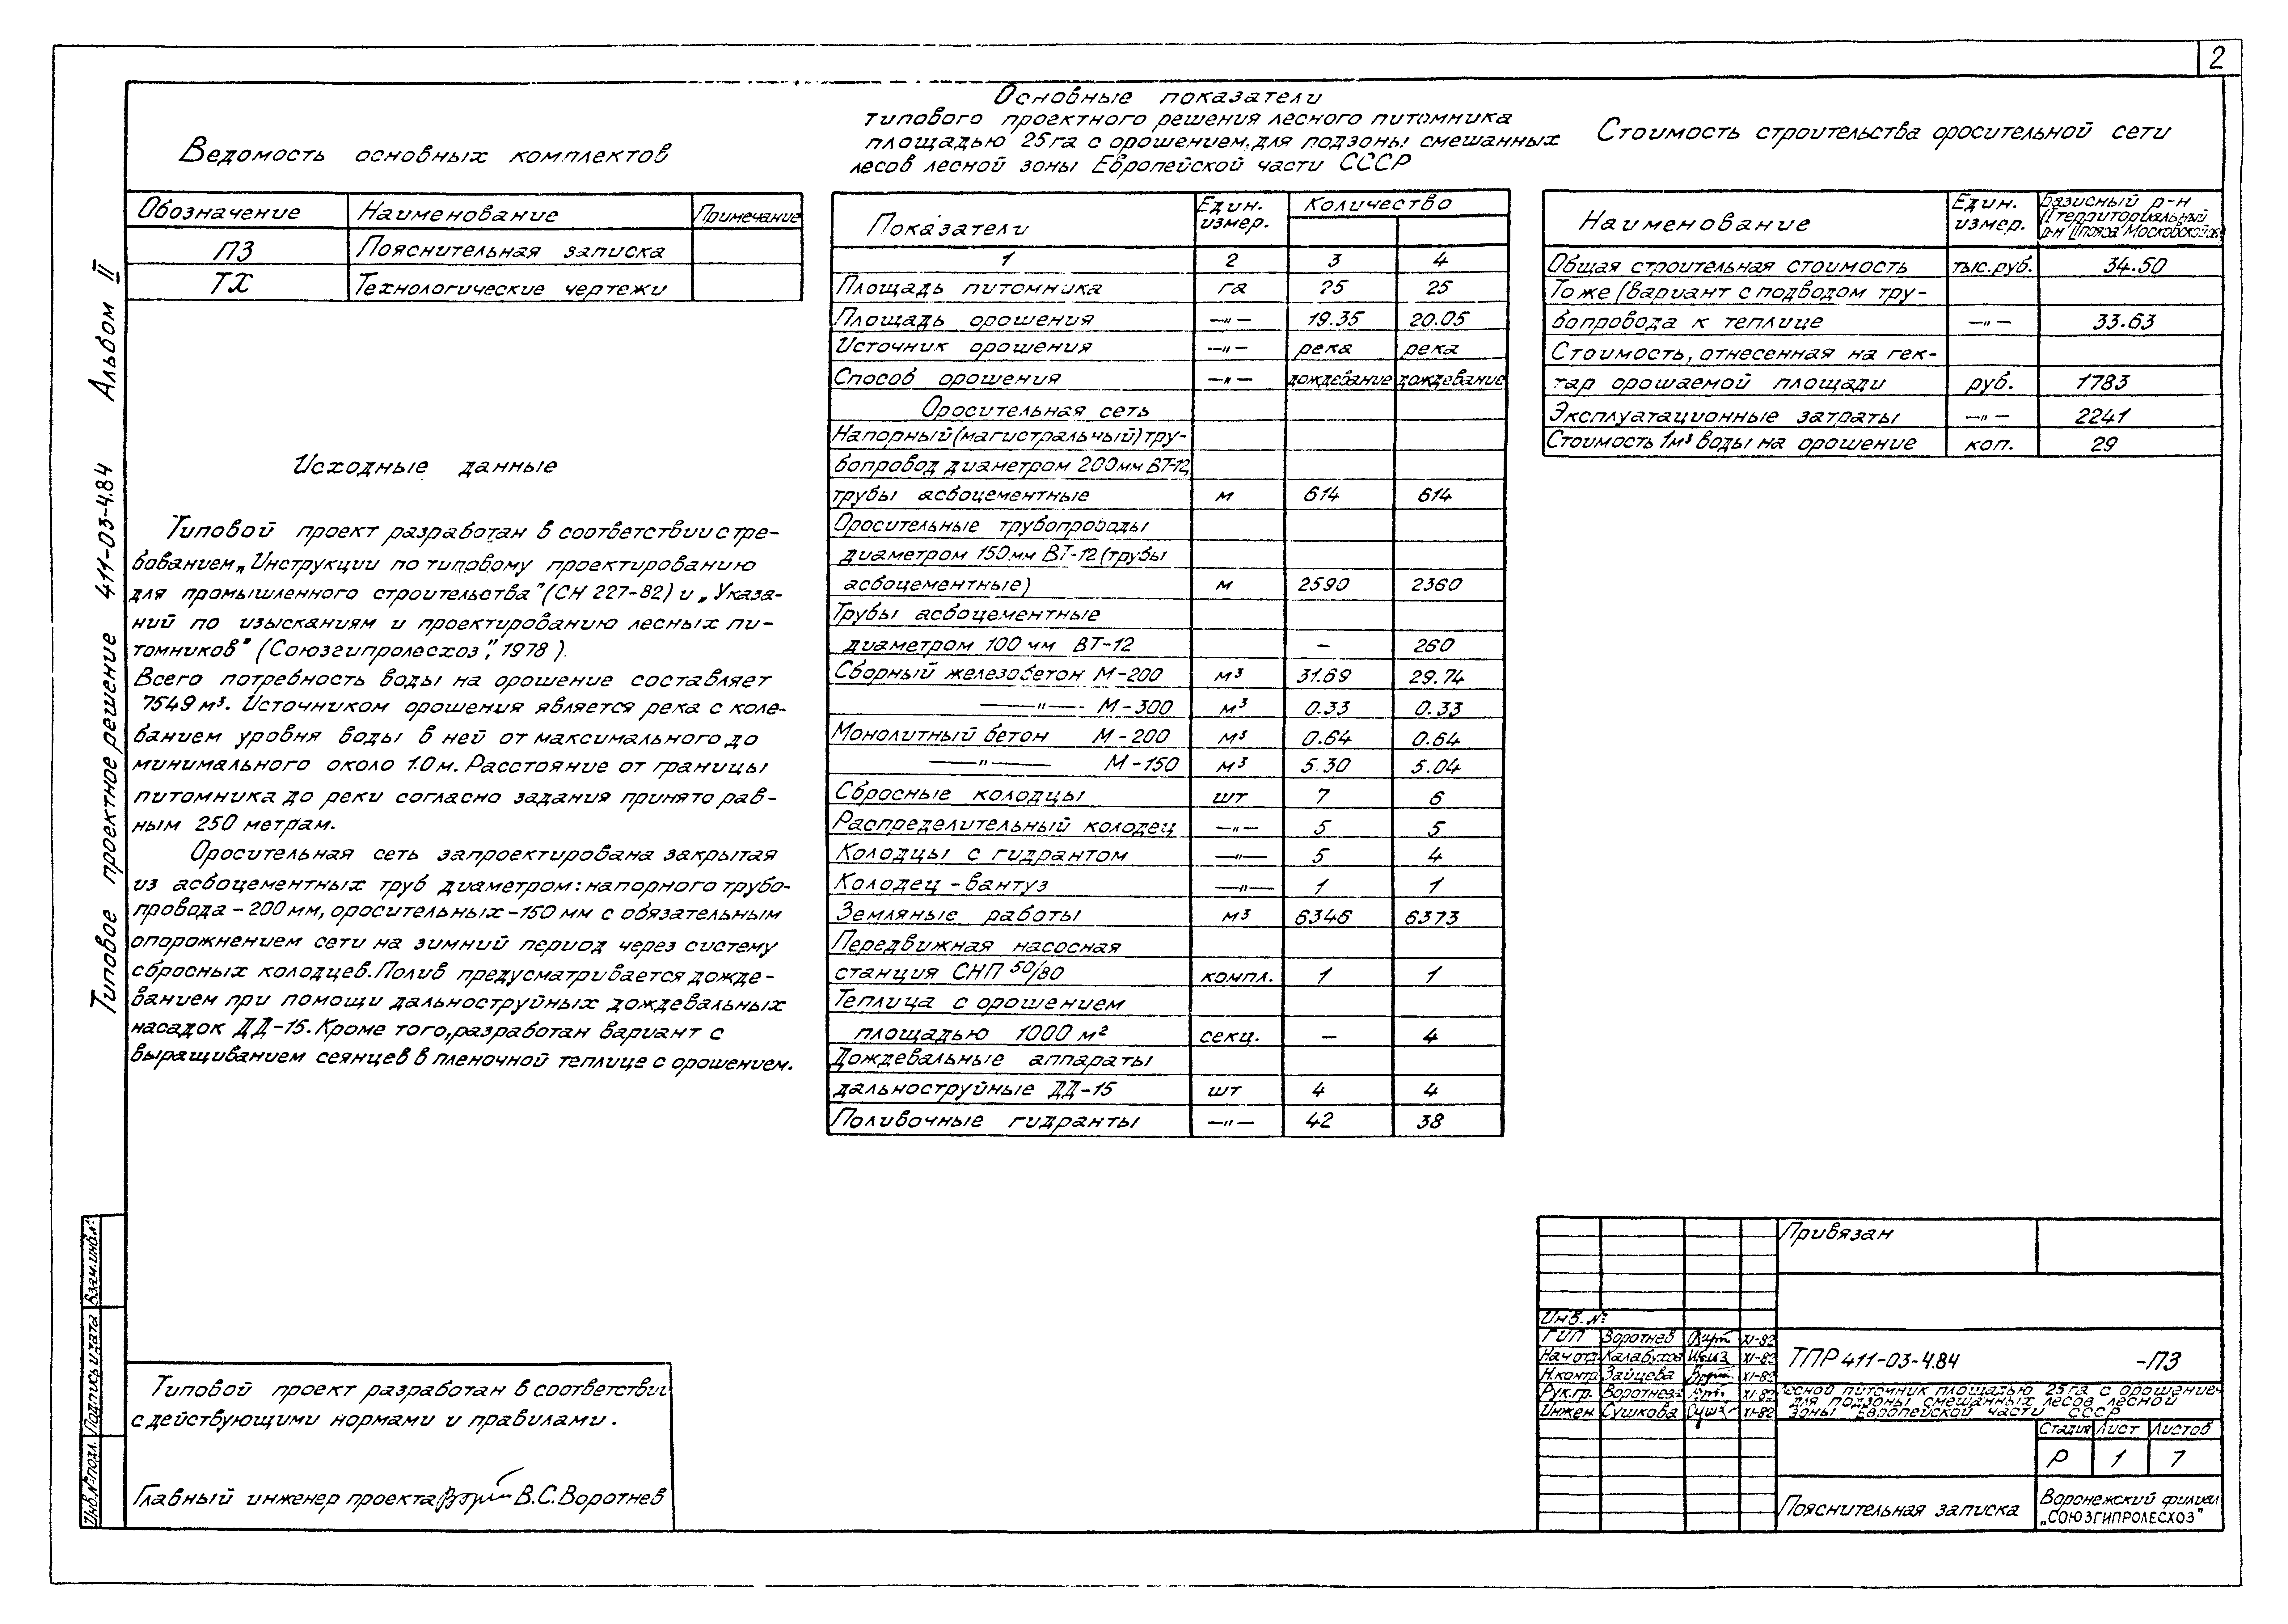 2
Типовое проектное решение 411-03-4.84 Альбом II
Ведомость основных комплектов
Обозначение Наименование Примечание
ПЗ Пояснительная записка
ТХ Технологические чертежи
Исходные данные
Типовой проект разработан в соответствии с тре-
бованием „Инструкции по типовому проектированию
для промышленного строительства" (СН 227-82) и „Указа-
ний по изысканиям и проектированию лесных пи-
томников" (Союзгипролесхоз", 1978).
Всего потребность воды на орошение составляет
7549 м³. Источником орошения является река с коле-
банием уровня воды в ней от максимального до
минимального около 1.0 м. Расстояние от границы
питомника до реки согласно задания принято рав-
ным 250 метрам.
Оросительная сеть запроектирована закрытая
из асбоцементных труб диаметром: напорного трубо-
провода - 200 мм, оросительных - 150 мм с обязательным
опорожнением сети на зимний период через систему
сбросных колодцев. Полив предусматривается дожде-
ванием при помощи дальноструйных дождевальных
насадок ДД-15. Кроме того, разработан вариант с
выращиванием сеянцев в пленочной теплице с орошением.
Типовой проект разработан в соответствии
с действующими нормами и правилами.
Главный инженер проекта В.С. Воротнев
Основные показатели
типового проектного решения лесного питомника
площадью 25 га с орошением, для подзоны смешанных
лесов лесной зоны Европейской части СССР
Показатели Един. измер. Количество
1 2 3 4
Площадь питомника га 25 25
Площадь орошения —"— 19.35 20.05
Источник орошения —"— река река
Способ орошения —"— дождевание дождевание
Оросительная сеть
Напорный (магистральный) тру-
бопровод диаметром 200 мм ВТ-12,
трубы асбоцементные м 614 614
Оросительные трубопроводы
диаметром 150 мм ВТ-12 (трубы
асбоцементные) м 2590 2360
Трубы асбоцементные
диаметром 100 мм ВТ-12 – 260
Сборный железобетон М-200 м³ 31.69 29.74
—"— М-300 м³ 0.33 0.33
Монолитный бетон М-200 м³ 0.64 0.64
—"— М-150 м³ 5.30 5.04
Сбросные колодцы шт 7 6
Распределительный колодец —"— 5 5
Колодцы с гидрантом —"— 5 4
Колодец - вантуз —"— 1 1
Земляные работы м³ 6346 6373
Передвижная насосная
станция СНП 50/80 компл. 1 1
Теплица с орошением
площадью 1000 м² секц. – 4
Дождевальные аппараты
дальноструйные ДД-15 шт 4 4
Поливочные гидранты —"— 42 38
Стоимость строительства оросительной сети
Наименование Един. измер. Базисный р-н (I территориальный р-н II пояса Московской об.)
Общая строительная стоимость тыс. руб. 34.50
То же (вариант с подводом тру-
бопровода к теплице —"— 33.63
Стоимость, отнесенная на гек-
тар орошаемой площади руб. 1783
Эксплуатационные затраты —"— 2241
Стоимость 1м³ воды на орошение коп. 29
Взам. инв. №
Подпись и дата
Инв. № подл.
Привязан
Инв. №
ГИП Воротнев XI-82
Нач отд. Калабухов XI-82
Н. контр Зайцева XI-82
Рук. гр. Воротнева XI-82
Инжен. Сушкова XI-82
ТПР 411-03-4.84 -ПЗ
Лесной питомник площадью 25 га с орошением
для подзоны смешанных лесов лесной
зоны Европейской части СССР
Стадия Лист Листов
Р 1 7
Пояснительная записка
Воронежский филиал
„СОЮЗГИПРОЛЕСХОЗ"